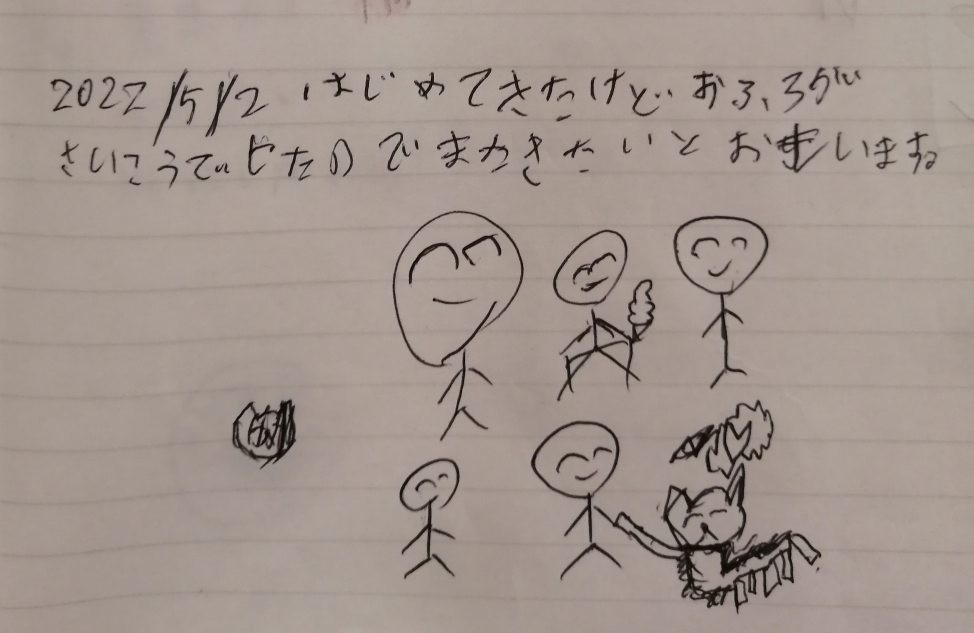 2022/5/2 はじめてきたけど おふろが
さいこうでしたのでまたきたいとおもいます。